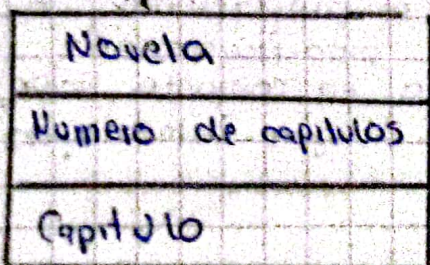 Novela
Numero de capitulos
Capitulo